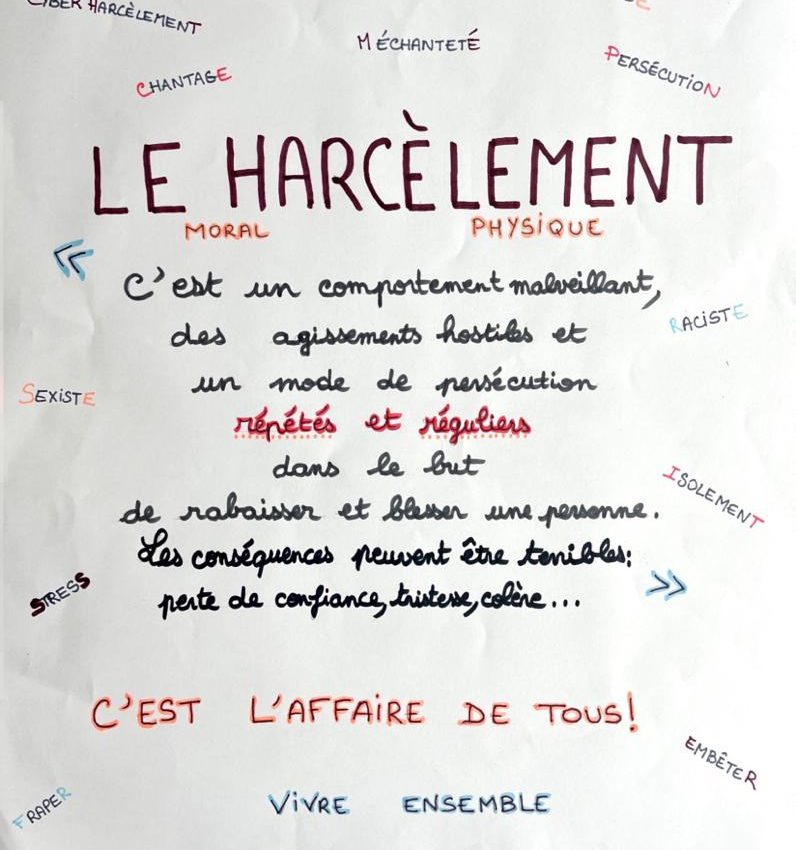 CIBER HARCÈLEMENT
MÉCHANTETÉ
PERSÉCUTION
CHANTAGE
LE HARCÈLEMENT
MORAL PHYSIQUE
«
C'est un comportement malveillant,
des agissements hostiles et
RACISTE
un mode de persécution
SEXISTE
répétés et réguliers
dans le but
ISOLEMENT
de rabaisser et blesser une personne.
Les conséquences peuvent être terribles:
STRESS
perte de confiance, tristesse, colère... »
C'EST L'AFFAIRE DE TOUS!
EMBÊTER
VIVRE ENSEMBLE
FRAPER